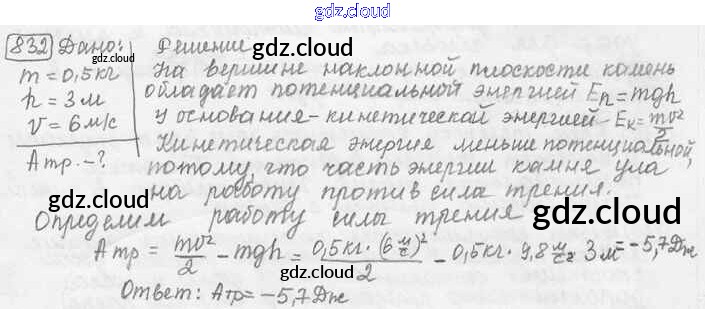 gdz.cloud
832 Дано: Решение
gdz.cloud gdz.cloud
m = 0,5 кг На вершине наклонной плоскости камень
h = 3 м обладает потенциальной энергией Eп = mgh
v = 6 м/с у основания - кинетической энергией - Eк = mv²/2
Aтр. - ? Кинетическая энергия меньше потенциальной,
потому, что часть энергии камня ула
gdz.cloud на работу против сила трения.
Определим работу силы трения gdz.cloud
Aтр = mv²/2 - mgh = 0,5 кг · (6 м/с)²/2 - 0,5 кг · 9,8 м/с² · 3 м = -5,7 Дж
gdz.cloud
Ответ: Aтр = -5,7 Дж gdz.cloud